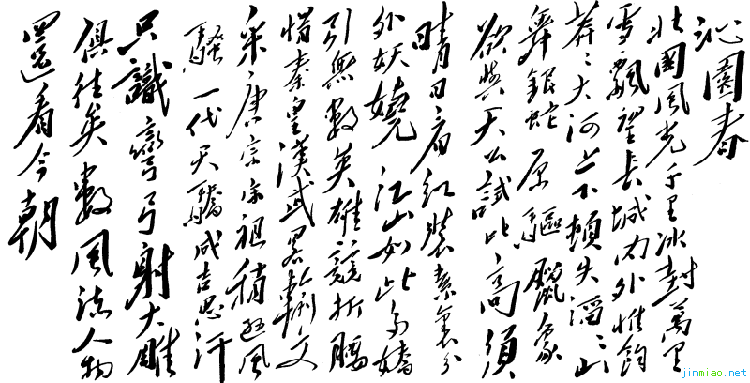 沁園春
北國風光千里冰封萬里
雪飄望長城内外惟餘
莽〻大河上下頓失滔〻山
舞銀蛇原驅臘象
欲與天公試比高須
晴日看紅裝素裹分
外妖嬈江山如此多嬌
引無數英雄競折腰
惜秦皇漢武略輸文
采唐宗宋祖稍遜風
騷一代天驕成吉思汗
只識彎弓射大雕
俱往矣數風流人物
還看今朝
jinmiao.net